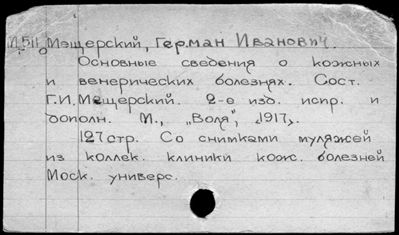 М.511 Мещерский, Герман Иванович.
Основные сведения о кожных
и венерических болезнях. Сост.
Г.И. Мещерский. 2-е изд. испр. и
дополн. М., „Воля", <1917>.
127 стр. Со снимками муляжей
из коллек. клиники кож. болезней
Моск. универс.